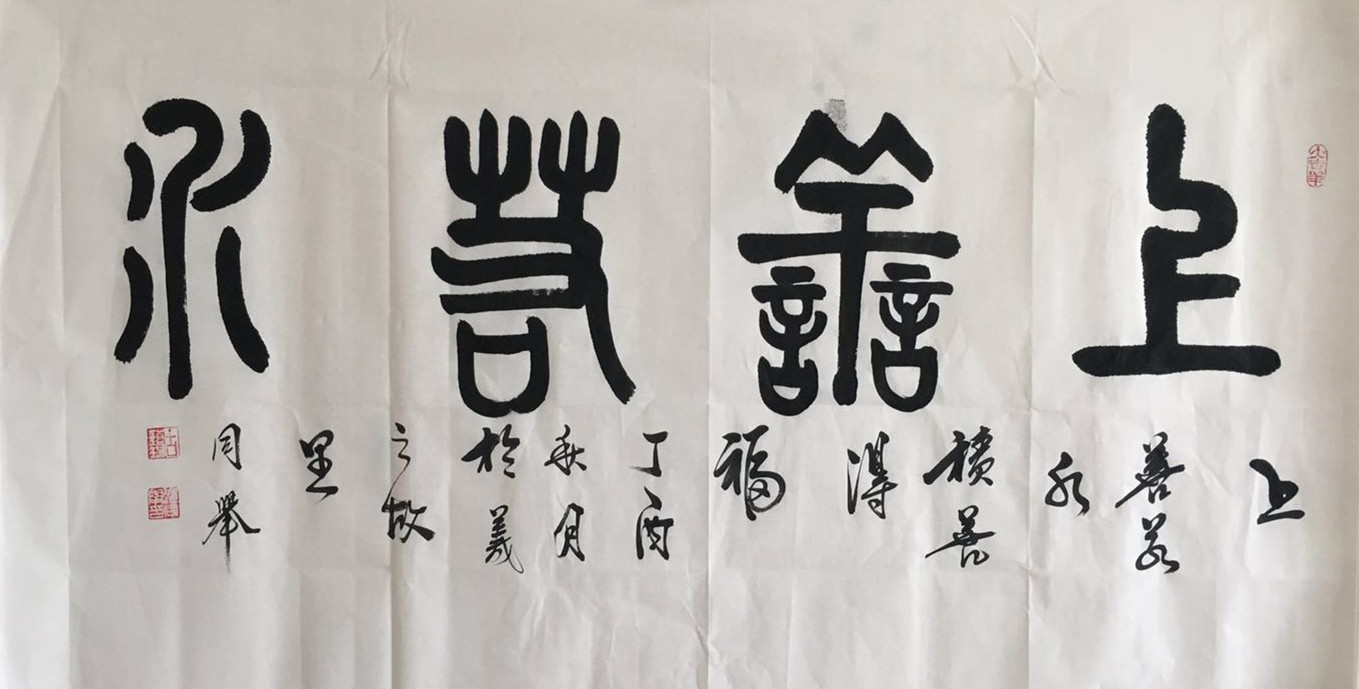 上善若水
上
善若
水
積善
得
福
丁酉
秋月
於義
之故
里
同舉